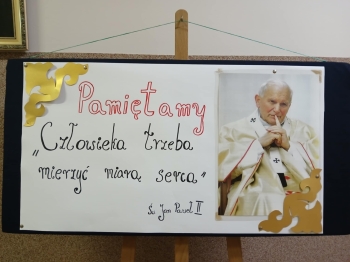 Pamiętamy
„Człowieka trzeba
mierzyć miarą serca"
Św. Jan Paweł II